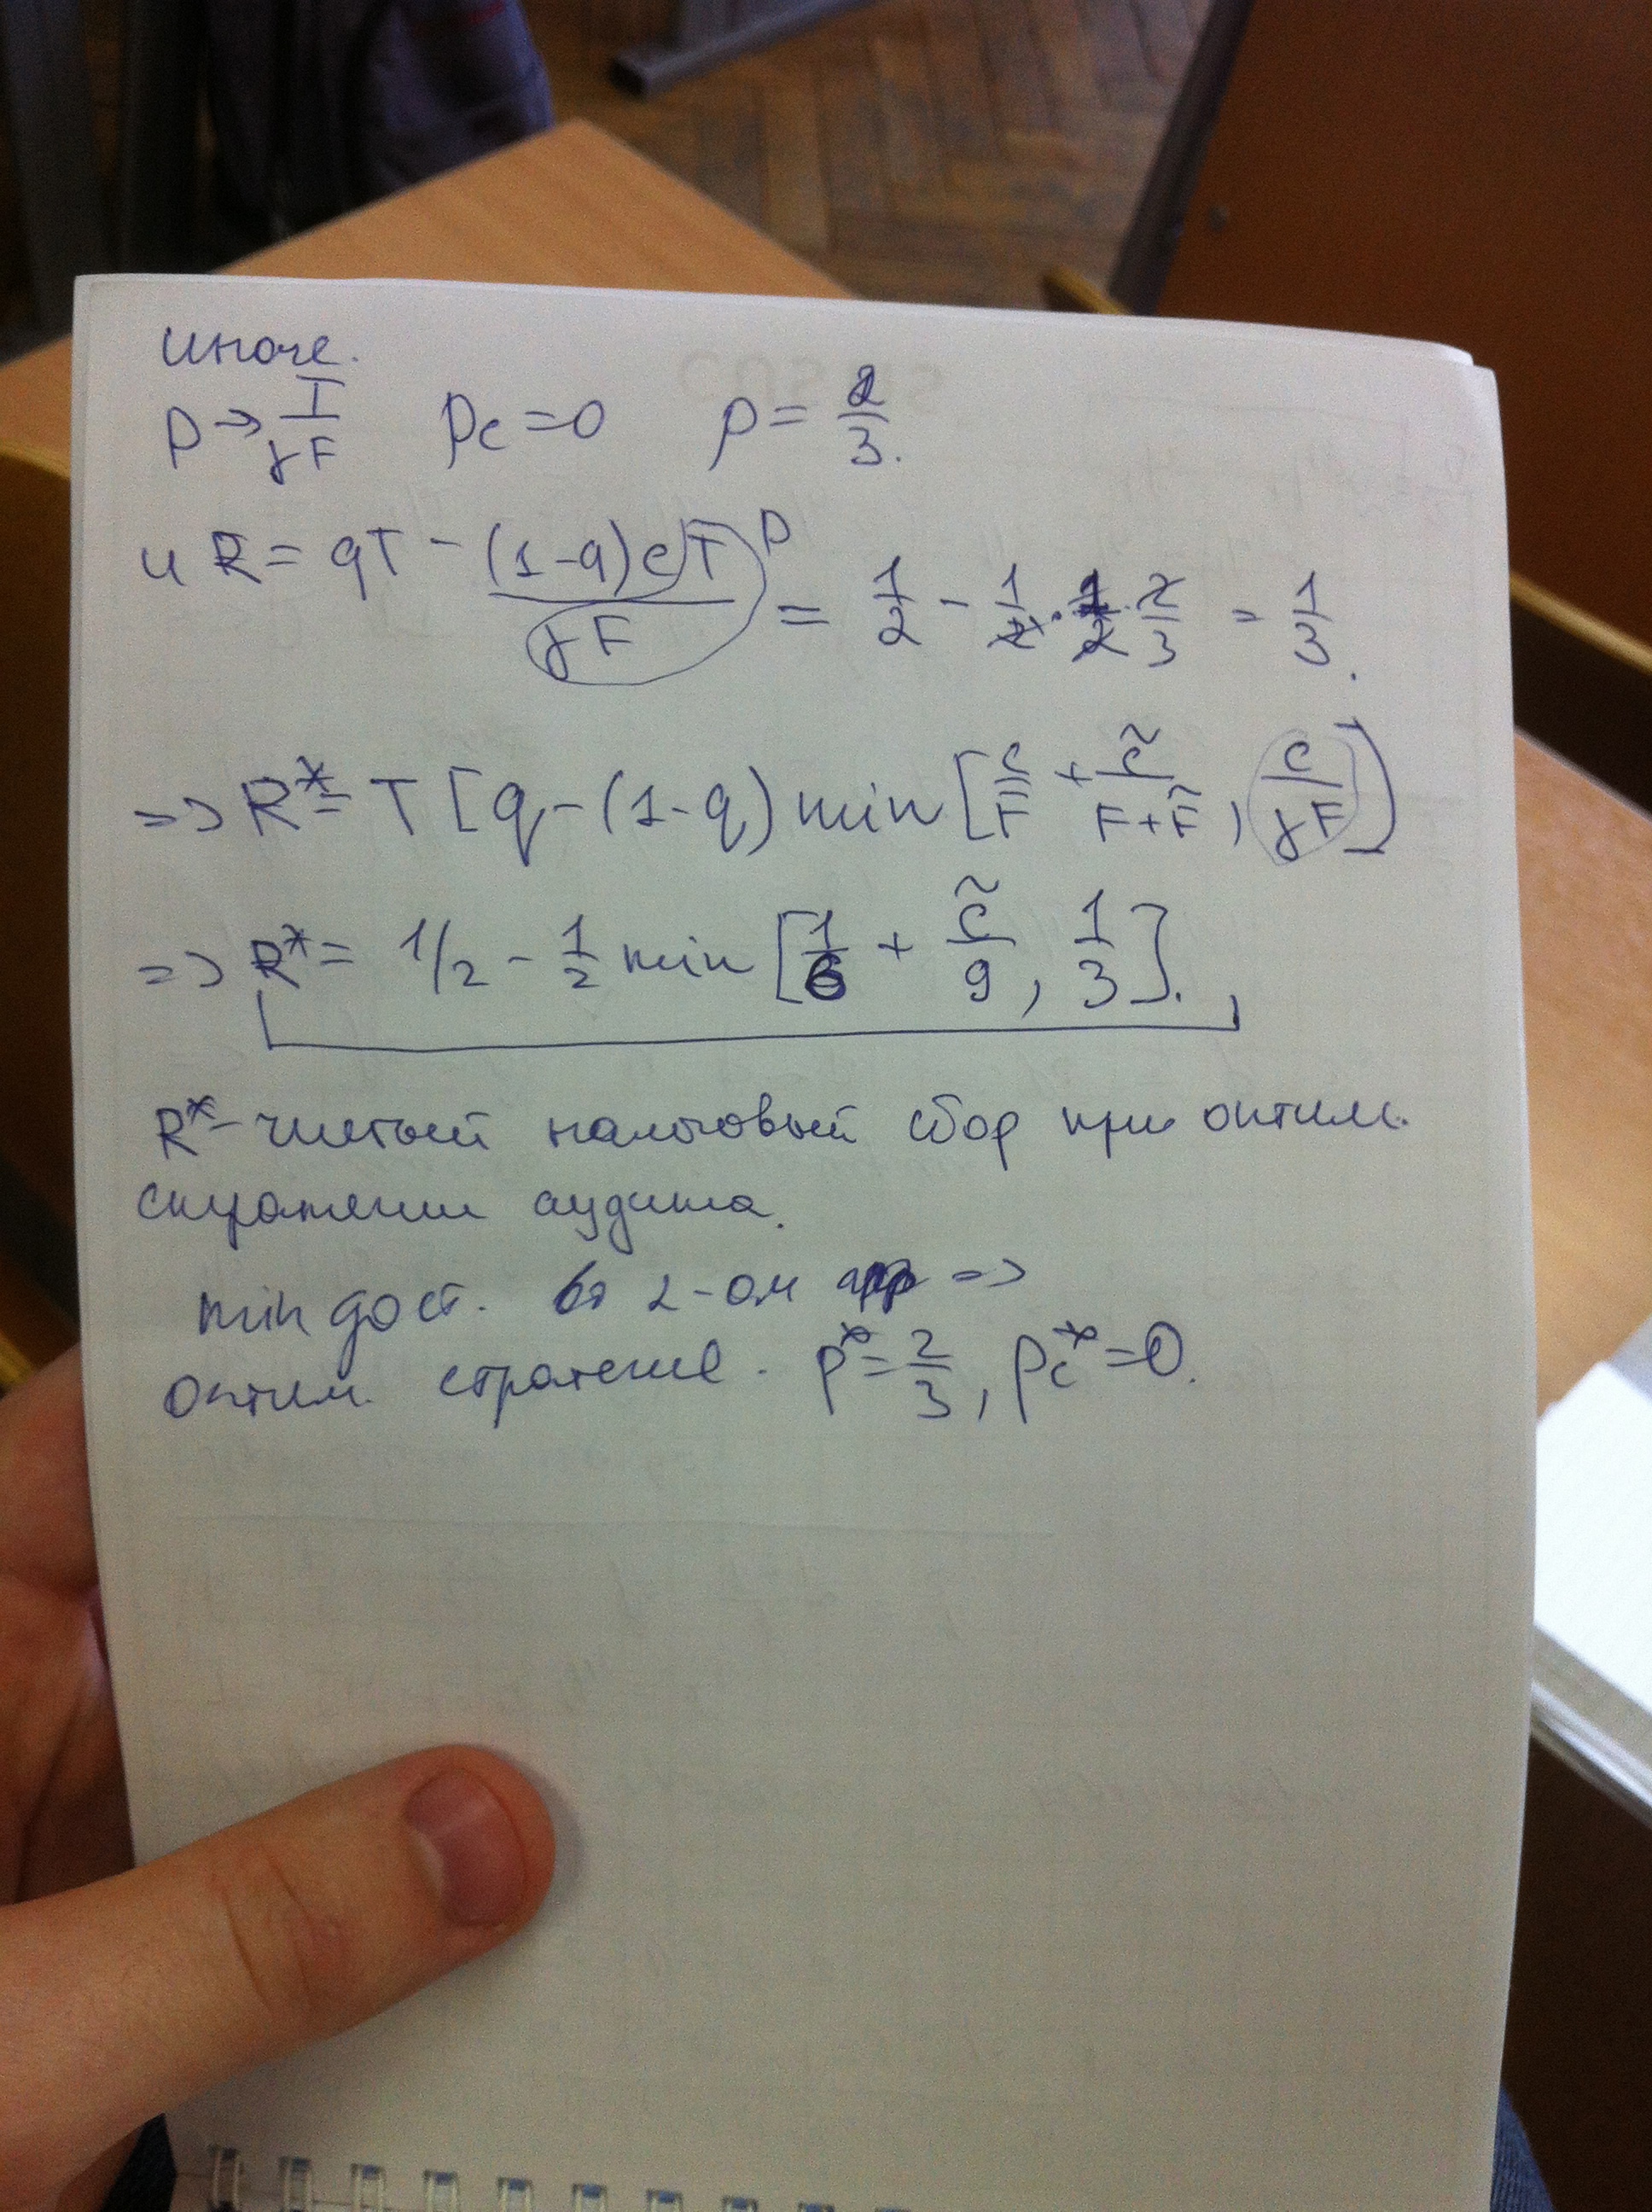 иначе.
p → T/γF   p_c = 0   p = 2/3.
и R = qT − (1-q)cT/γF p = 1/2 − 1/2 · 1/2 · 2/3 = 1/3.
=> R* = T [q − (1-q) min [c/F + c̃/(F+F̃), c/γF]]
=> R* = 1/2 − 1/2 min [1/6 + c̃/9, 1/3].
R* - чистый налоговый сбор при оптим.
стратегии аудита.
min дост. во 2-ом =>
оптим. стратегия. p* = 2/3, p_c* = 0.